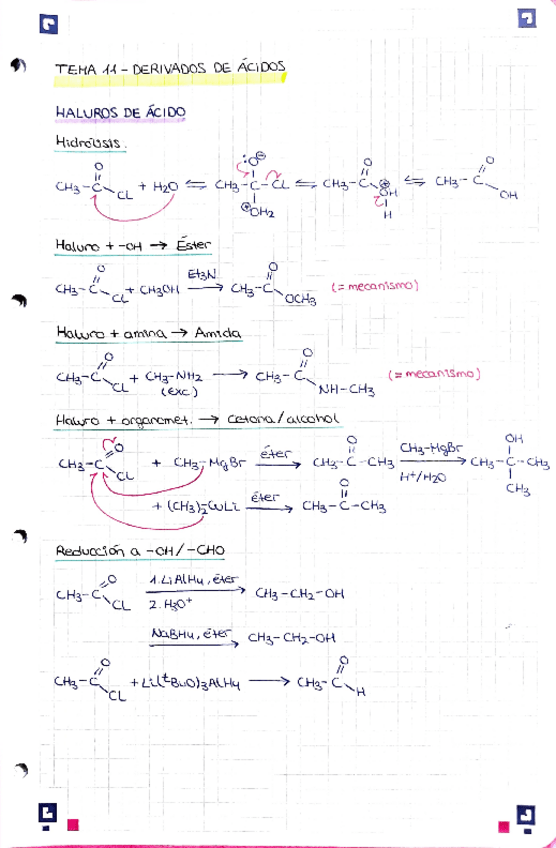 TEMA 11 - DERIVADOS DE ÁCIDOS
HALUROS DE ÁCIDO
Hidrólisis.
CH3-C(=O)-CL + H2O ⇌ CH3-C(:O⊖)(⊕OH2)-CL ⇌ CH3-C(=O)-⊕OH-H ⇌ CH3-C(=O)-OH
Haluro + -OH → Éster
CH3-C(=O)-CL + CH3OH —Et3N→ CH3-C(=O)-OCH3 (= mecanismo)
Haluro + amina → Amida
CH3-C(=O)-CL + CH3-NH2 (exc.) → CH3-C(=O)-NH-CH3 (= mecanismo)
Haluro + organomet. → cetona/alcohol
CH3-C(=O)-CL + CH3-MgBr —éter→ CH3-C(=O)-CH3 —CH3-MgBr, H+/H2O→ CH3-C(OH)(CH3)-CH3
+ (CH3)2CuLi —éter→ CH3-C(=O)-CH3
Reducción a -OH/-CHO
CH3-C(=O)-CL —1. LiAlH4, éter 2. H3O+→ CH3-CH2-OH
—NaBH4, éter→ CH3-CH2-OH
CH3-C(=O)-CL + Li(tBuO)3AlH4 → CH3-C(=O)-H